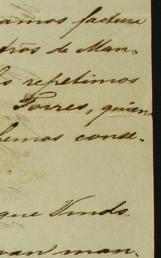 amos factura
tros de Man-
s repetimos
Torres, quien
hemos conse-
que Vmds.
man-